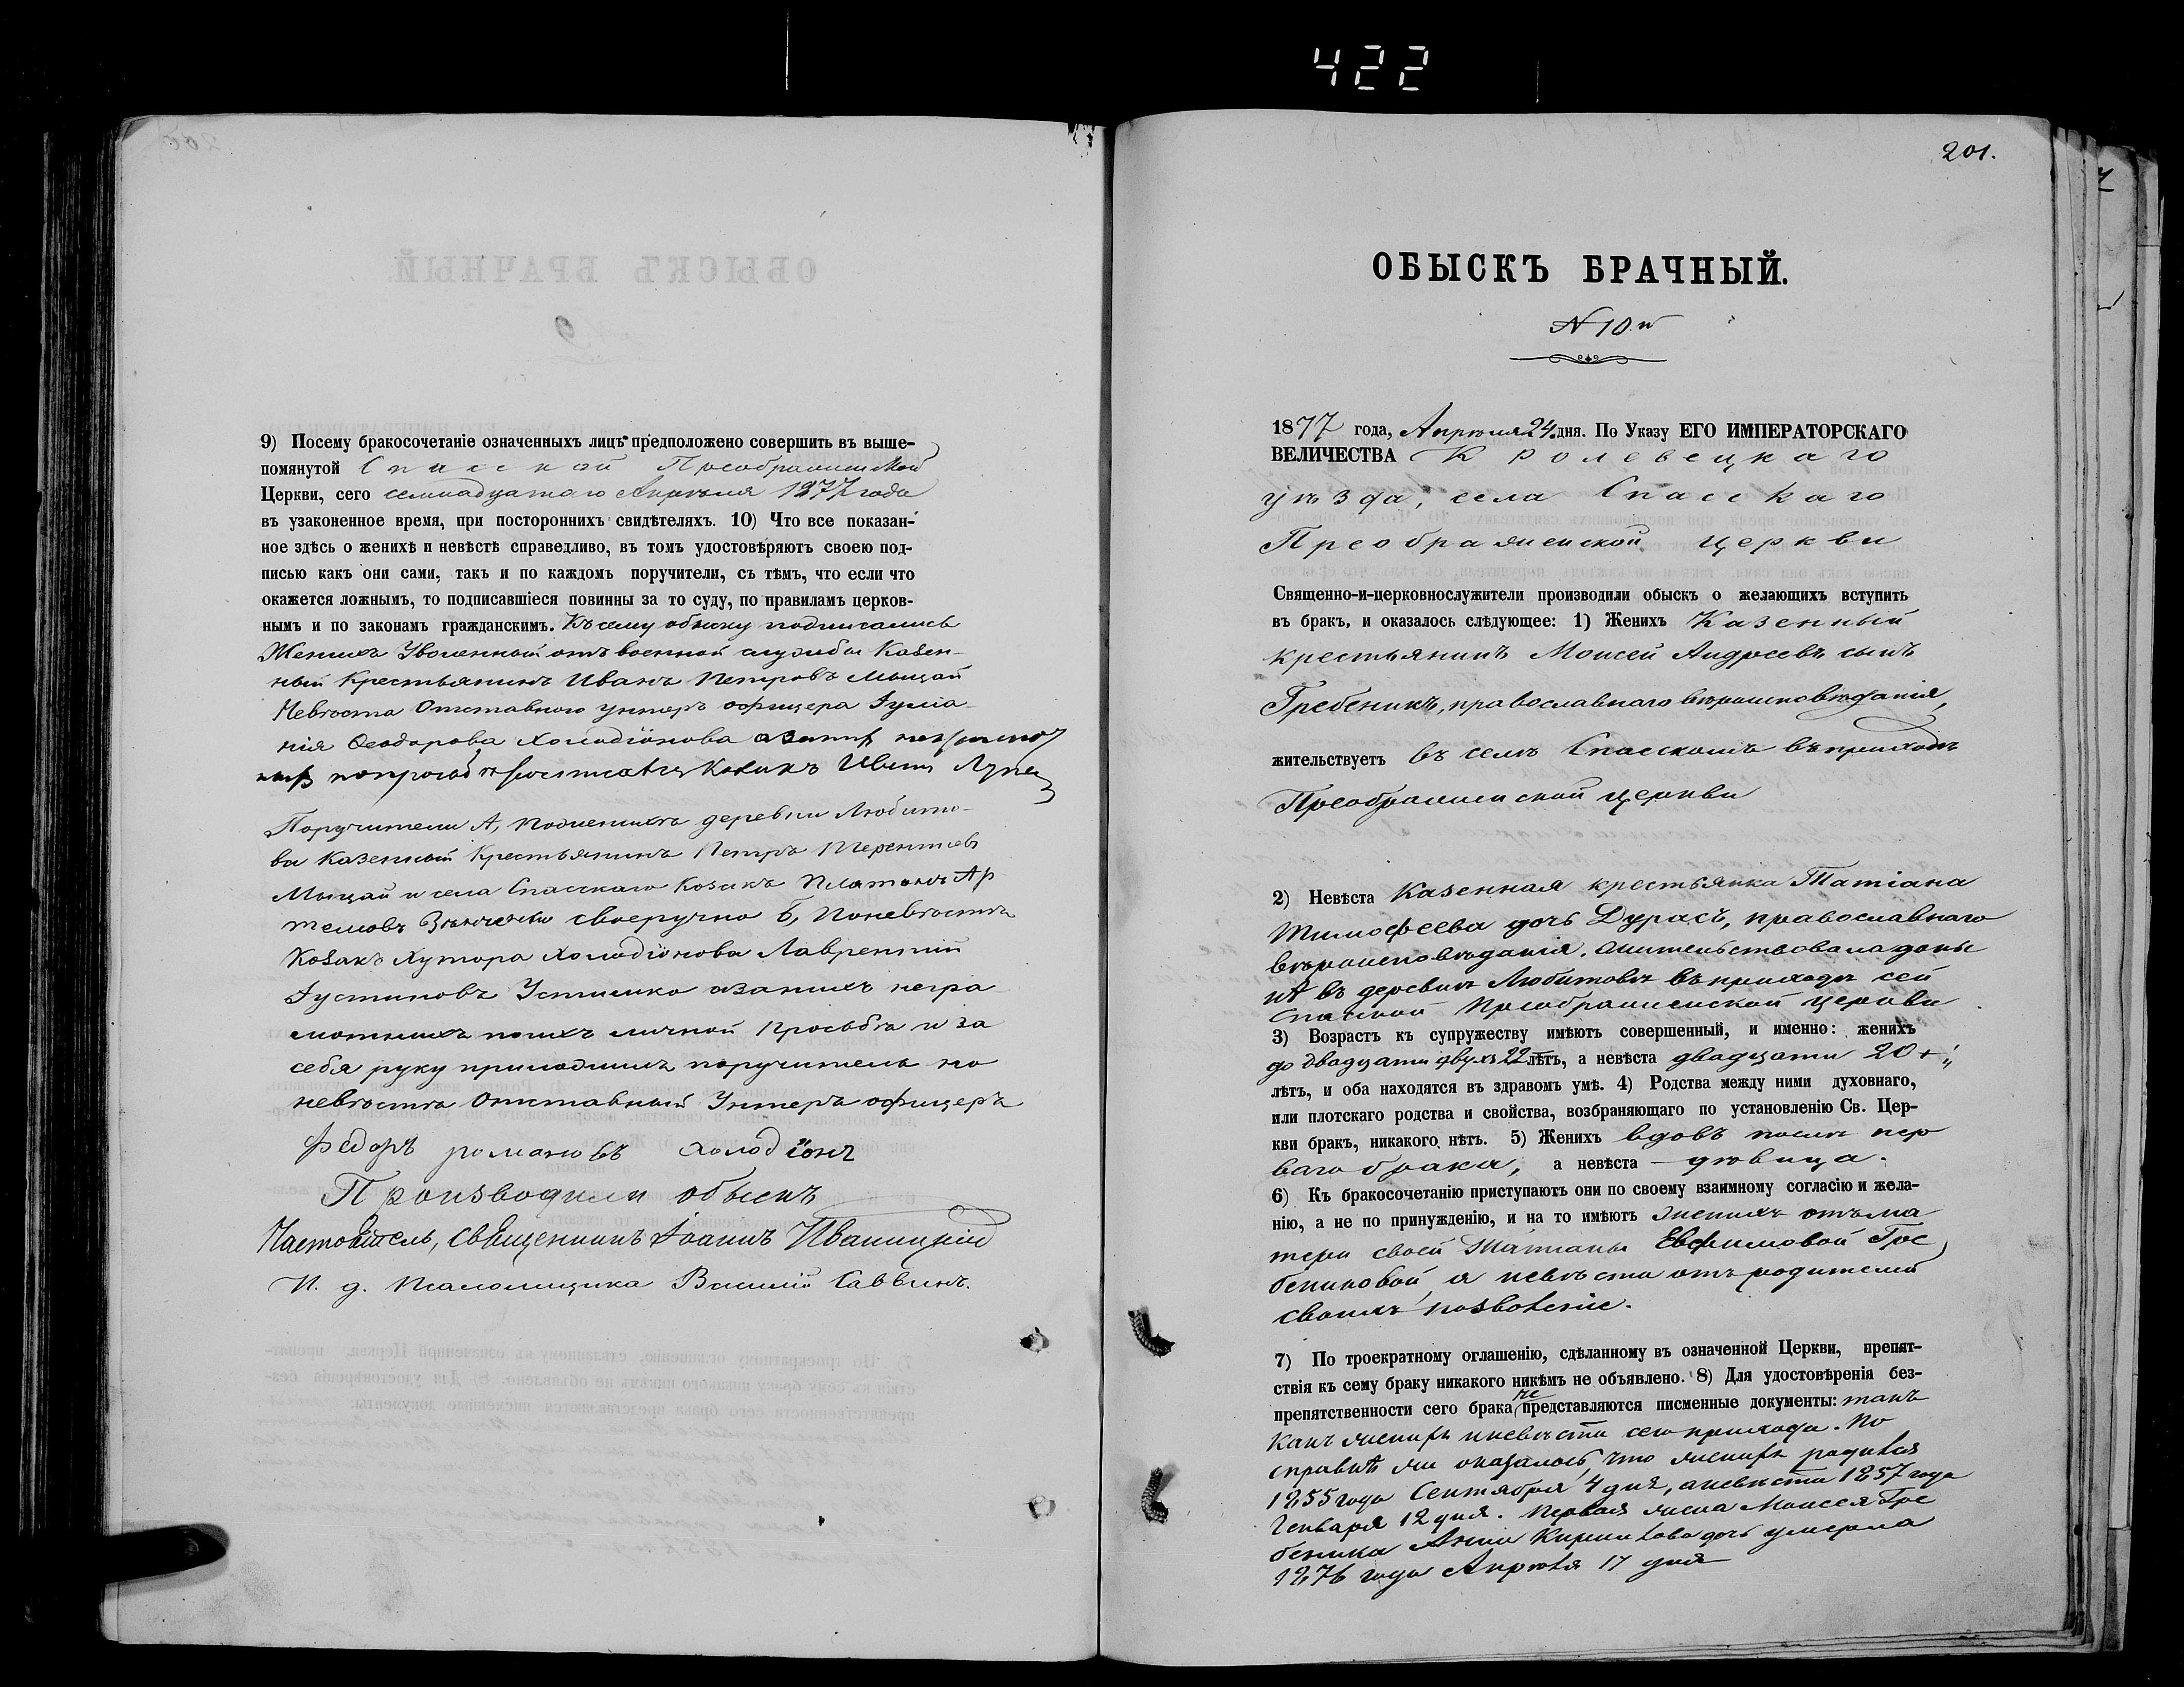 422
9) Посему бракосочетаніе означенныхъ лицъ предположено совершить въ выше-
помянутой Спасской Преображенской
Церкви, сего семнадцатаго Апрѣля 1877 года
въ узаконенное время, при постороннихъ свидѣтеляхъ. 10) Что все показан-
ное здѣсь о женихѣ и невѣстѣ справедливо, въ томъ удостовѣряютъ своею под-
писью какъ они сами, такъ и по каждомъ поручители, съ тѣмъ, что если что
окажется ложнымъ, то подписавшіеся повинны за то суду, по правиламъ церков-
нымъ и по законамъ гражданскимъ. Къ сему обыску подписались
Женихъ Уволенный отъ военной службы Казен-
ный Крестьянинъ Иванъ Петровъ Мыцай
Невѣста Отставного унтеръ офицера Іулiа-
нія Ѳеодорова Холодіонова а за
Козакъ Иванъ
Поручители А, по женихѣ деревни Любито-
ва Казенный Крестьянинъ Петръ Терентіевъ
Мыцай и села Спасскаго Козакъ Платонъ Ар
темовъ своеручно Б, По невѣстѣ
Козакъ Хутора Холодіонова Лаврентій
Іустиновъ Устименко а за нихъ негра
мотныхъ по ихъ личной просьбѣ и за
себя руку приложилъ поручитель по
невѣстѣ Отставный Унтеръ офицеръ
Федоръ романовъ холодіонъ
Производили обыскъ
Настоятель, священникъ Іоаннъ Иваницкій
И. д. Псаломщика Василій Саввинъ.
201.
ОБЫСКЪ БРАЧНЫЙ.
N 10й
1877 года, Апрѣля 24 дня. По Указу ЕГО ИМПЕРАТОРСКАГО
ВЕЛИЧЕСТВА Кролевецкаго
уѣзда, села Спасскаго
Преображенской церкви
Священно-и-церковнослужители производили обыскъ о желающихъ вступить
въ бракъ, и оказалось слѣдующее: 1) Женихъ Казенный
крестьянинъ Моисей Андреевъ сынъ
Гребеникъ, православнаго вѣроисповѣданія,
жительствуетъ въ селѣ Спасскомъ въ приходѣ
Преображенской церкви
2) Невѣста Казенная крестьянка Татіана
Тимофеева дочь Дурасъ, православнаго
вѣроисповѣданія, жительствовала доны
нѣ въ деревнѣ Любитовѣ въ приходѣ сей
Спасской Преображенской церкви
3) Возрастъ къ супружеству имѣютъ совершенный, и именно: женихъ
до двадцати двухъ 22 лѣтъ, а невѣста двадцати 20 ти
лѣтъ, и оба находятся въ здравомъ умѣ. 4) Родства между ними духовнаго,
или плотскаго родства и свойства, возбраняющаго по установленію Св. Цер-
кви бракъ, никакого нѣтъ. 5) Женихъ вдовъ послѣ пер
ваго брака, а невѣста дѣвица.
6) Къ бракосочетанію приступаютъ они по своему взаимному согласію и жела-
нію, а не по принужденію, и на то имѣютъ женихъ отъ ма
тери своей Татіаны Евфимовой Гре
бениковой, а невѣста отъ родителей
своихъ позволеніе.
7) По троекратному оглашенію, сдѣланному въ означенной Церкви, препят-
ствія къ сему браку никакого никѣмъ не объявлено. 8) Для удостовѣренія без-
препятственности сего брака не представляются писменные документы: такъ
какъ женихъ и невѣста сего прихода. По
справкѣ же оказалось, что женихъ родился
1855 года Сентября 4 дня, а невѣста 1857 года
Генваря 12 дня. Первая жена Моисея Гре
беника Анна Кирилова дочь умерла
1876 года Апрѣля 17 дня